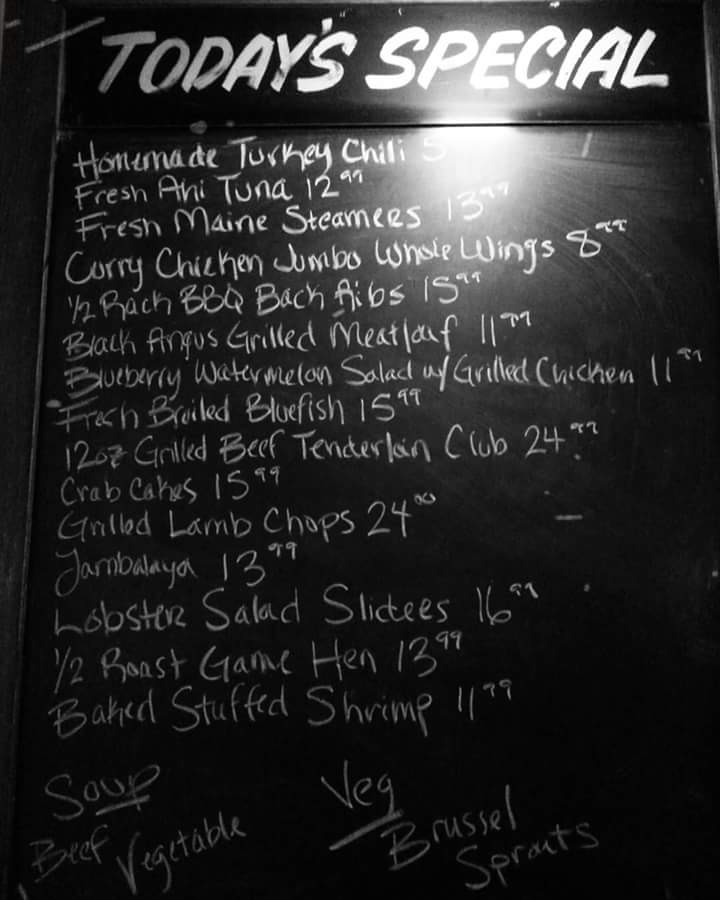 TODAY'S SPECIAL
Homemade Turkey Chili 5
Fresh Ahi Tuna 12⁹⁹
Fresh Maine Steamers 13⁹⁹
Curry Chicken Jumbo Whole Wings 8⁹⁹
1/2 Rack BBQ Back Ribs 15⁹⁹
Black Angus Grilled Meatloaf 11⁹⁹
Blueberry Watermelon Salad w/ Grilled Chicken 11⁹⁹
Fresh Broiled Bluefish 15⁹⁹
12oz Grilled Beef Tenderloin Club 24⁹⁹
Crab Cakes 15⁹⁹
Grilled Lamb Chops 24⁰⁰
Jambalaya 13⁹⁹
Lobster Salad Sliders 16⁹⁹
1/2 Roast Game Hen 13⁹⁹
Baked Stuffed Shrimp 11⁹⁹
Soup
Beef Vegetable
Veg
Brussel
Sprouts